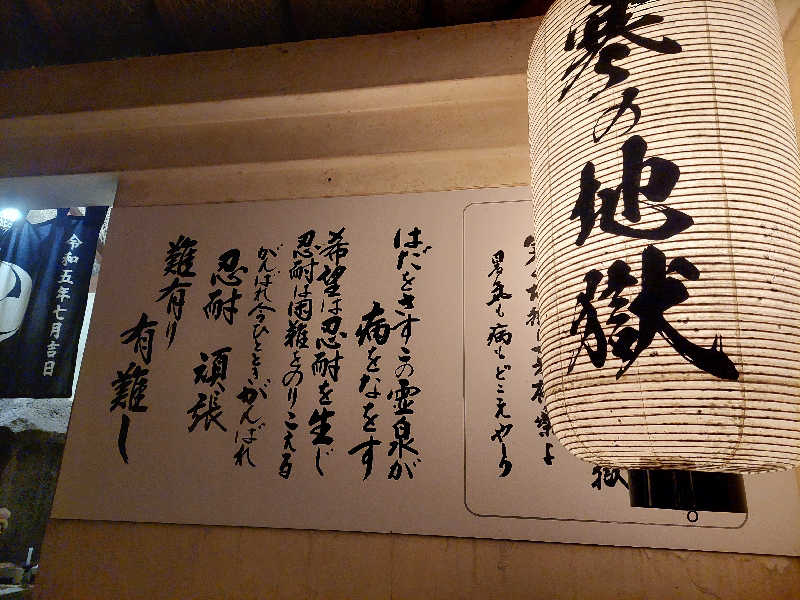 寒の地獄
暑気も病もどこえやら
はだをさすこの霊泉が
病をなをす
希望は忍耐を生じ
忍耐は困難をのりこえる
がんばれ今ひとときがんばれ
忍耐 頑張
難有り
有難し
令和五年七月吉日